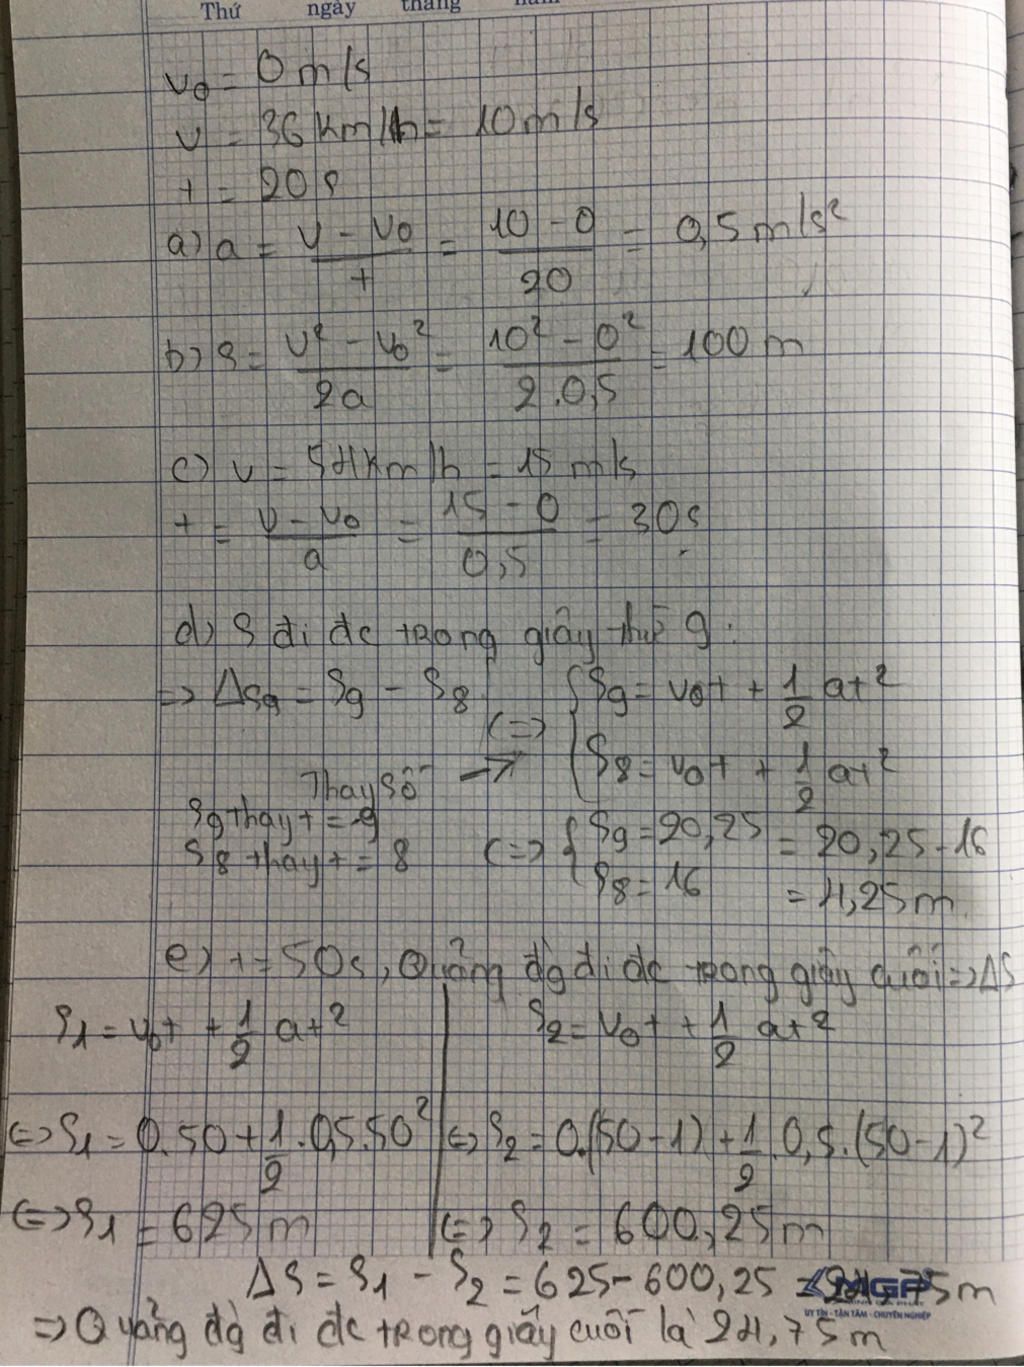 Thứ ngày tháng năm
v₀ = 0 m/s
v = 36 km/h = 10 m/s
t = 20s
a) a = (v - v₀)/t = (10 - 0)/20 = 0,5 m/s²
b) S = (v² - v₀²)/2a = (10² - 0²)/(2.0,5) = 100 m
c) v = 54 km/h = 15 m/s
t = (v - v₀)/a = (15 - 0)/0,5 = 30s
d) S đi đc trong giây thứ 9:
=> ΔS₉ = S₉ - S₈ <=> { S₉ = v₀t + 1/2 at²
→ S₈ = v₀t + 1/2 at²
Thay số
S₉ thay t = 9
S₈ thay t = 8
<=> { S₉ = 20,25 = 20,25 - 16
S₈ = 16 = 4,25m
e) t = 50s, Quảng đg đi đc trong giây cuối => ΔS
S₁ = v₀t + 1/2 at²
<=> S₁ = 0.50 + 1/2 . 0,5.50²
<=> S₁ = 625 m
S₂ = v₀t + 1/2 at²
<=> S₂ = 0.(50 - 1) + 1/2 . 0,5.(50 - 1)²
<=> S₂ = 600,25 m
ΔS = S₁ - S₂ = 625 - 600,25 = 24,75 m
MGP
UY TÍN - TẬN TÂM - CHUYÊN NGHIỆP
=> Quảng đg đi đc trong giây cuối là 24,75 m